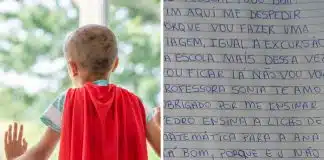 IM AQUI ME DESPEDIR
ORQUE VOU FAZER UMA
IAGEM, IGUAL A EXCURSÃO
A ESCOLA. MAIS DESSA VE
OU FICAR LÁ NÃO VOU VO
ROFESSORA SONIA TE AMO
BRIGADO POR ME ENSINAR
EDRO ENSINA A LIÇÃO DE
ATEMÁTICA PARA A ANA
Á BOM, PORQUE EU NÃO